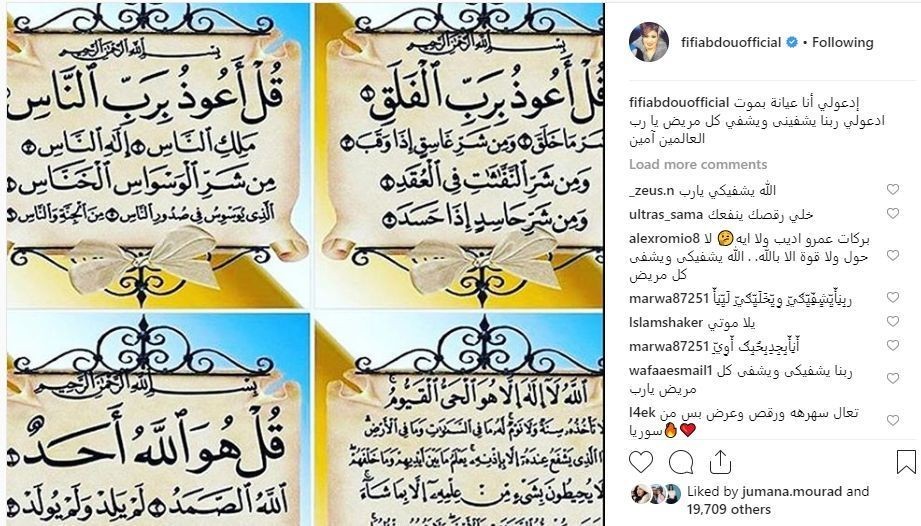 بسم الله الرحمن الرحيم
قُلْ أَعُوذُ بِرَبِّ ٱلْفَلَقِ
شَرِّ مَا خَلَقَ وَمِن شَرِّ غَاسِقٍ إِذَا وَقَبَ
وَمِن شَرِّ ٱلنَّفَّٰثَٰتِ فِي ٱلْعُقَدِ
وَمِن شَرِّ حَاسِدٍ إِذَا حَسَدَ
بسم الله الرحمن الرحيم
قُلْ أَعُوذُ بِرَبِّ ٱلنَّاسِ
مَلِكِ ٱلنَّاسِ إِلَٰهِ ٱلنَّاسِ
مِن شَرِّ ٱلْوَسْوَاسِ ٱلْخَنَّاسِ
ٱلَّذِي يُوَسْوِسُ فِي صُدُورِ ٱلنَّاسِ مِنَ ٱلْجِنَّةِ وَٱلنَّاسِ
ٱللَّهُ لَا إِلَٰهَ إِلَّا هُوَ ٱلْحَيُّ ٱلْقَيُّومُ
لَا تَأْخُذُهُ سِنَةٌ وَلَا نَوْمٌ لَهُ مَا فِي ٱلسَّمَٰوَٰتِ وَمَا فِي ٱلْأَرْضِ
ٱلَّذِي يَشْفَعُ عِندَهُ إِلَّا بِإِذْنِهِ يَعْلَمُ مَا بَيْنَ أَيْدِيهِمْ وَمَا خَلْفَهُمْ
لَا يُحِيطُونَ بِشَيْءٍ مِنْ عِلْمِهِ إِلَّا بِمَا شَاءَ
بسم الله الرحمن الرحيم
قُلْ هُوَ ٱللَّهُ أَحَدٌ
ٱللَّهُ ٱلصَّمَدُ لَمْ يَلِدْ وَلَمْ يُولَدْ
fifiabdouofficial • Following
fifiabdouofficial إدعولي أنا عيانة بموت
ادعولي ربنا يشفينى ويشفي كل مريض يا رب
العالمين آمين
Load more comments
_zeus.n الله يشفيكي يارب
ultras_sama خلي رقصك ينفعك
alexromio8 بركات عمرو اديب ولا ايه🤔 لا
حول ولا قوة الا بالله. . الله يشفيكى ويشفى
كل مريض
marwa87251
Islamshaker يلا موتي
marwa87251
wafaaesmail1 ربنا يشفيكى ويشفى كل
مريض يارب
l4ek تعال سهرهه ورقص وعرض بس من
سوريا🔥❤️
Liked by jumana.mourad and
19,709 others